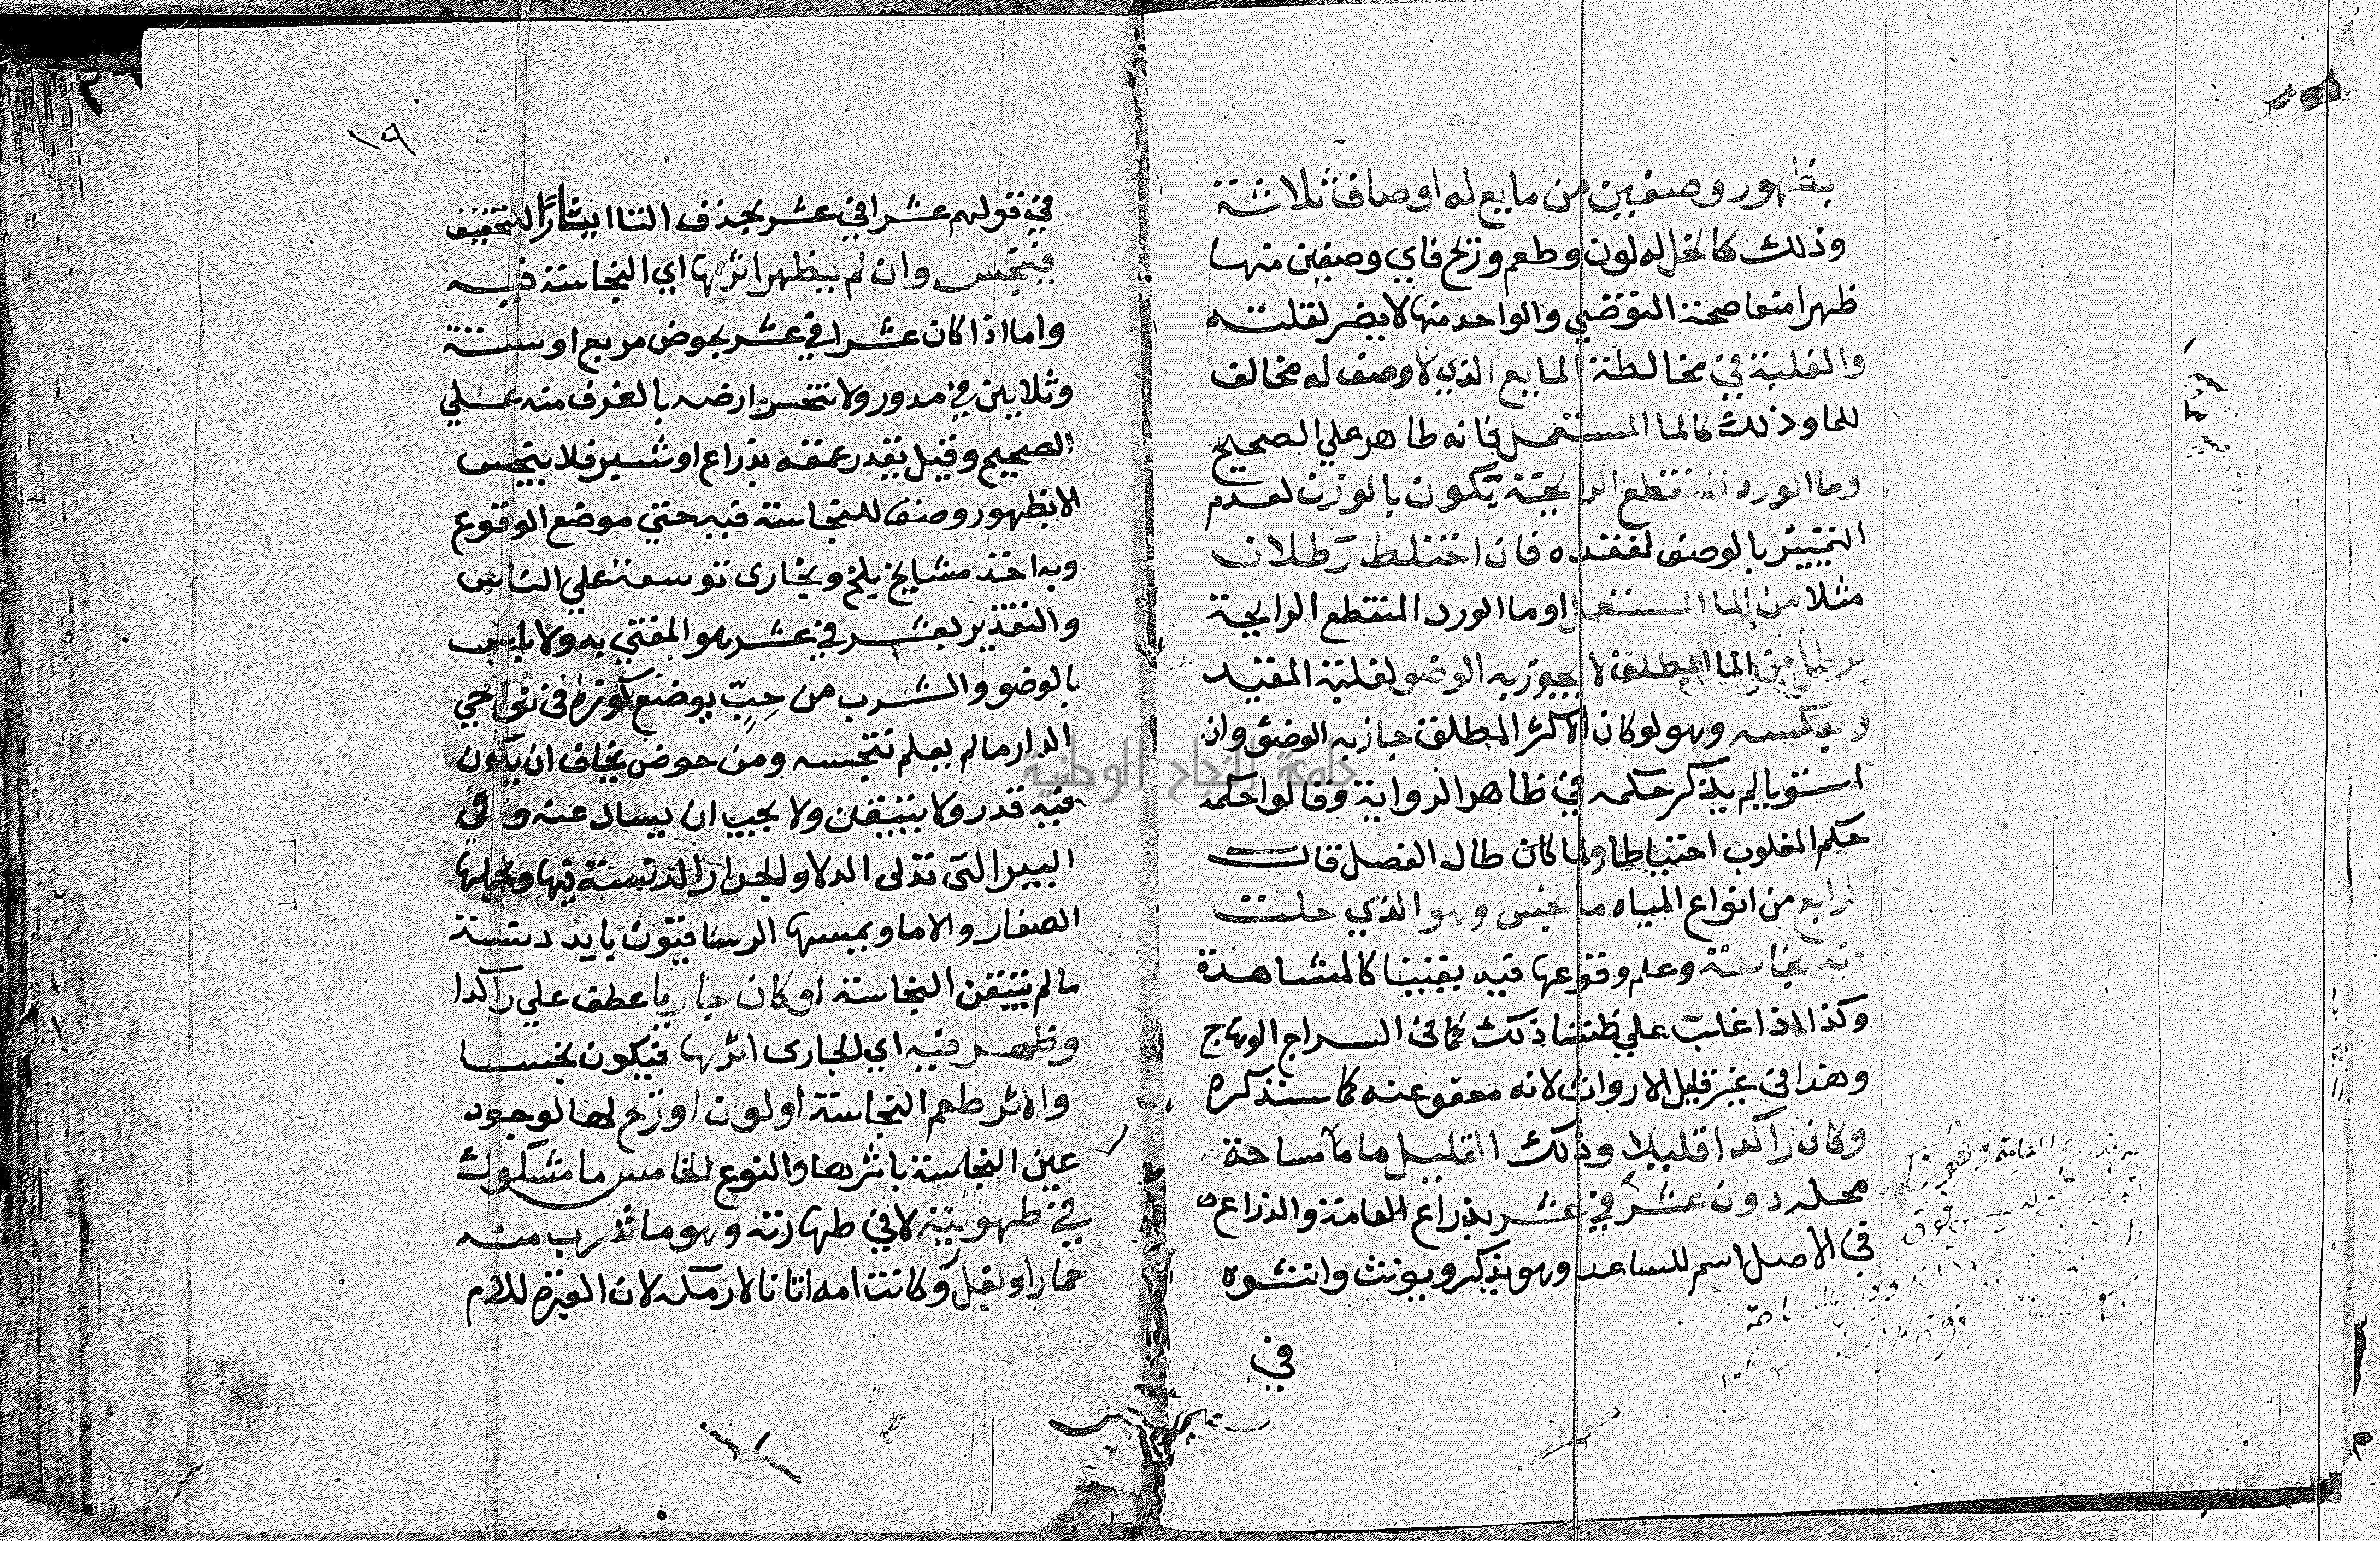 بظهور وصفين من مايع له اوصاف ثلاثة
وذلك كالخل له لون وطعم وريح فاي وصفين منها
ظهرا منعا صحة التوضي والواحد منها لا يضر لقلته
والغلبة في مخالطة المايع الذي لا وصف له مخالف
للما وذلك كالما المستعمل فانه طاهر علي الصحيح
وما الورد المنقطع الرايحة تكون بالوزن لعدم
التمييز بالوصف لفقده فان اختلط رطلان
مثلا من الما المستعمل او ما الورد المنقطع الرايحة
برطل من الما المطلق لا يجوز به الوضو لغلبة المقيد
وبعكسه وهو لو كان الاكثر المطلق جاز به الوضؤ وان
استويا لم يذكر حكمه في ظاهر الرواية وقالوا حكمه
حكم المغلوب احتياطا ولما كان طال الفصل قال
الرابع من انواع المياه ما نجس وهو الذي حلت
فيه نجاسة وعلم وقوعها فيه يقينا كالمشاهدة
وكذا اذا غلب علي ظننا ذلك كما في السراج الوهاج
وهذا في غير قليل الارواث لانه معفو عنه كما سنذكره
وكان راكدا قليلا وذلك القليل ما مساحة
محله دون عشر في عشر بذراع العامة والذراع
في الاصل اسم للساعد وهو يذكر ويونث وانثوه
في
١٩
في قولهم عشرا في عشر بحذف التا ايثارًا للتخفيف
فينجس وان لم يظهر اثرها اي النجاسة فيه
واما اذا كان عشرا في عشر بحوض مربع او ستة
وثلاثين في مدور ولا تنحسر ارضه بالغرف منه علي
الصحيح وقيل يقدر عمقه بذراع او شبر فلا ينجس
الا بظهور وصف للنجاسة فيه حتي موضع الوقوع
وبه اخذ مشايخ بلخ وبخارى توسعة علي الناس
والتقدير بعشر في عشر هو المفتي به ولا باس
بالوضو والشرب من حِبٍّ يوضع كوزه في نواحي
الدار ما لم يعلم تنجسه ومن حوض يخاف ان يكون
فيه قذر ولا يتيقن ولا يجب ان يسال عنه وفي
البير التي تدلى الدلا والجرار الدنسة فيها ويحملها
الصغار والاما ويمسها الرستاقيون بايد دنسة
ما لم تتيقن النجاسة او كان جاريا عطف علي راكدا
وظهر فيه اي الجارى اثرها فيكون نجسا
والاثر طعم النجاسة او لون او ريح لها لوجود
عين النجاسة باثرها والنوع الخامس ما مشكوك
في طهوريته لا في طهارته وهو ما شرب منه
حمار او بغل وكانت امه اتانا لا رمكة لان العبرة للام
جامعة النجاح الوطنية